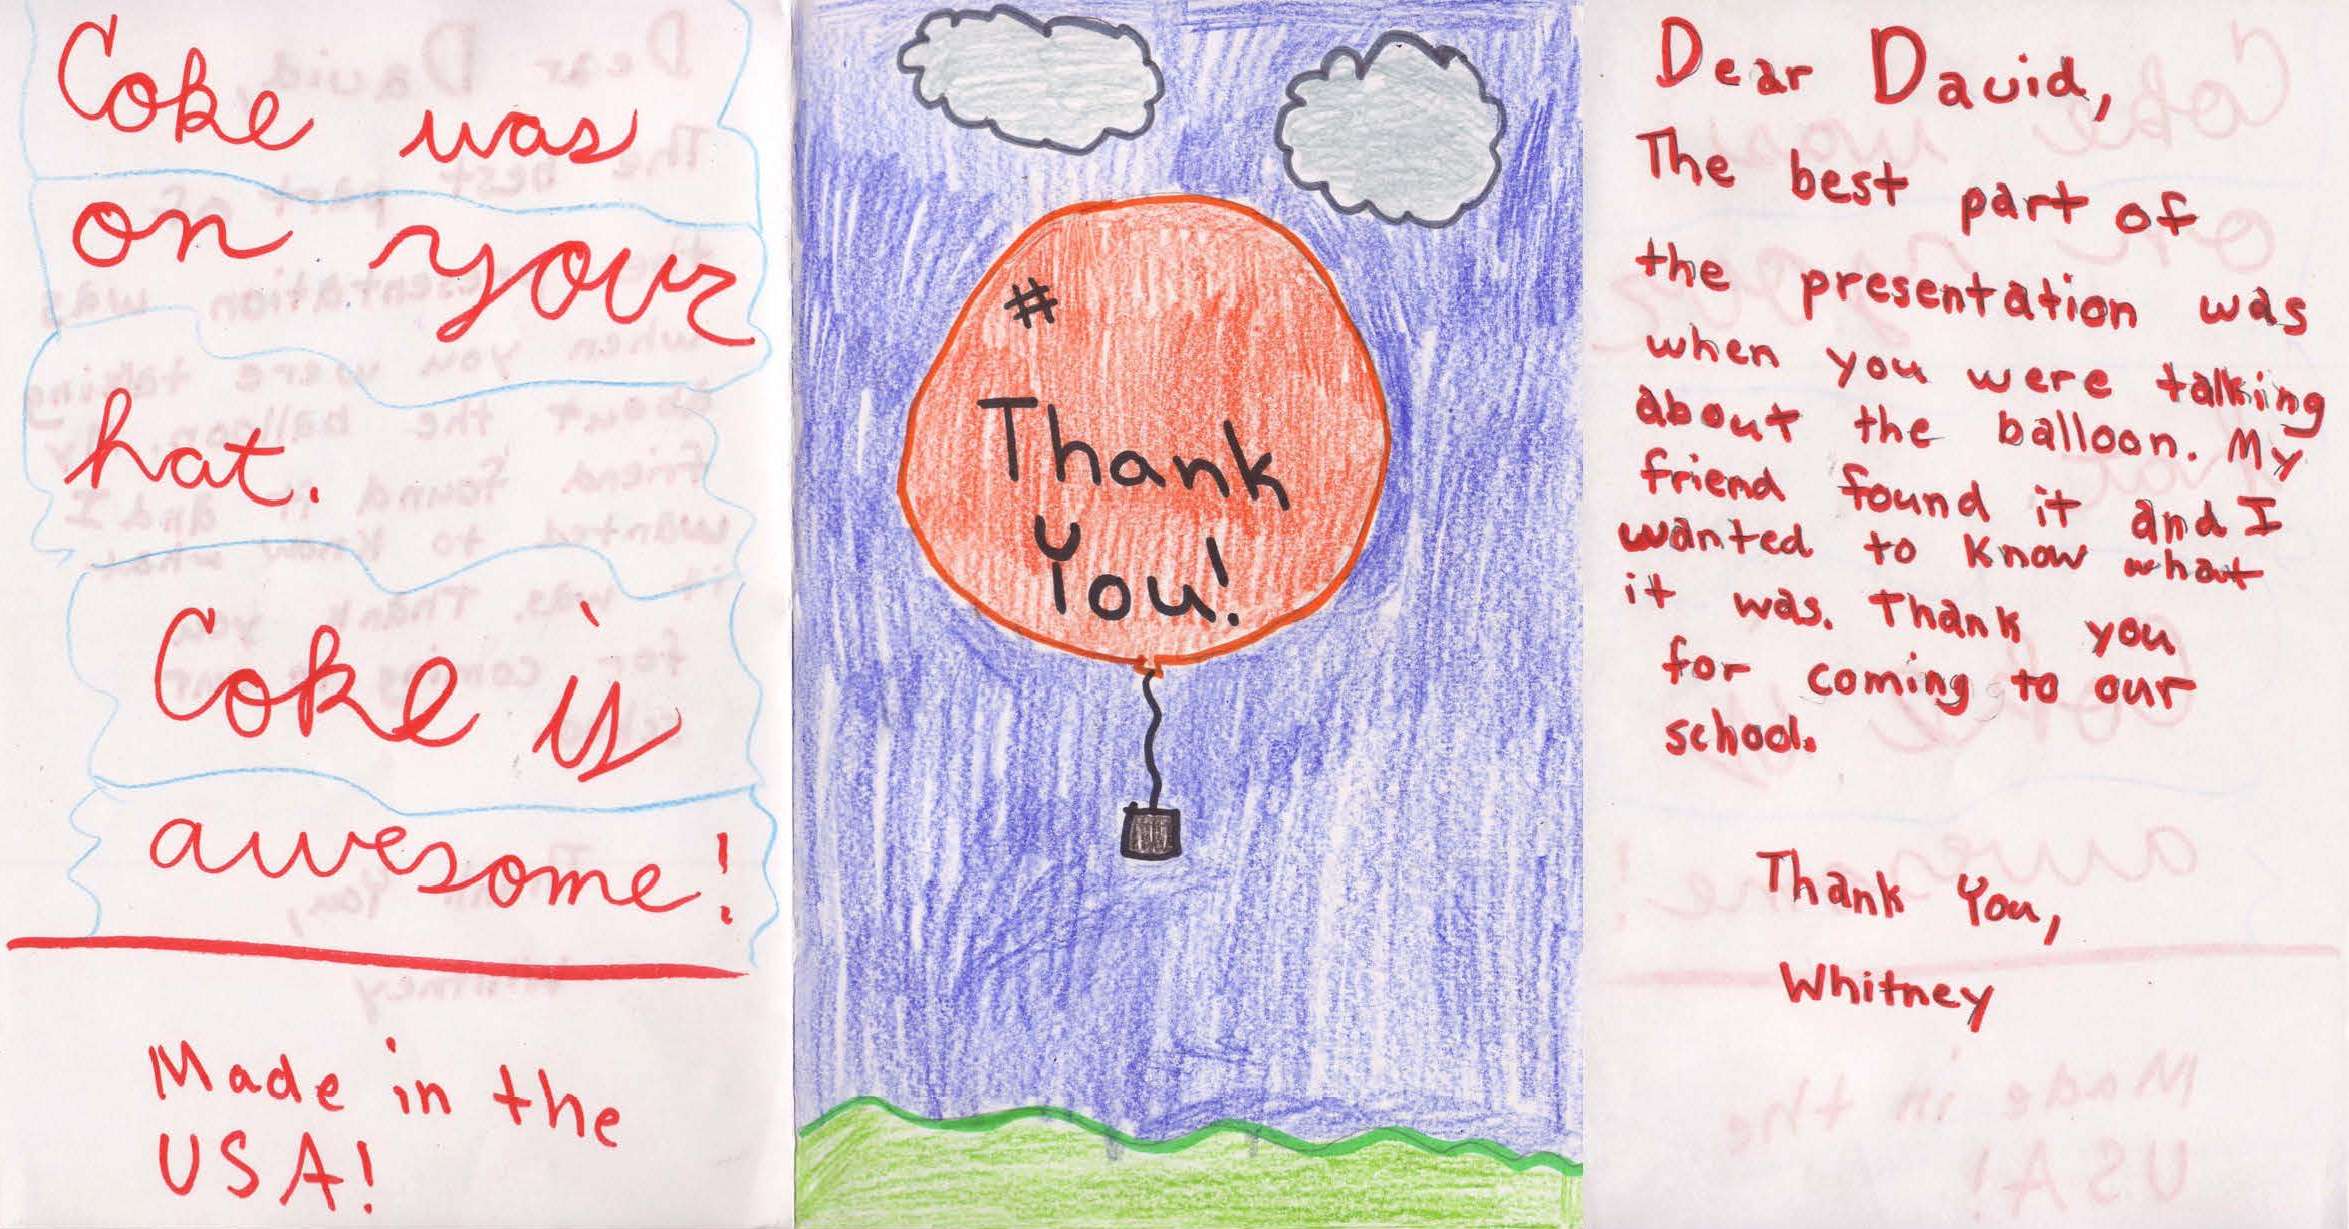 Coke was
on your
hat.
Coke is
awesome!
Made in the
USA!
#
Thank
You!
Dear David,
The best part of
the presentation was
when you were talking
about the balloon. My
friend found it and I
wanted to know what
it was. Thank you
for coming to our
school.
Thank You,
Whitney